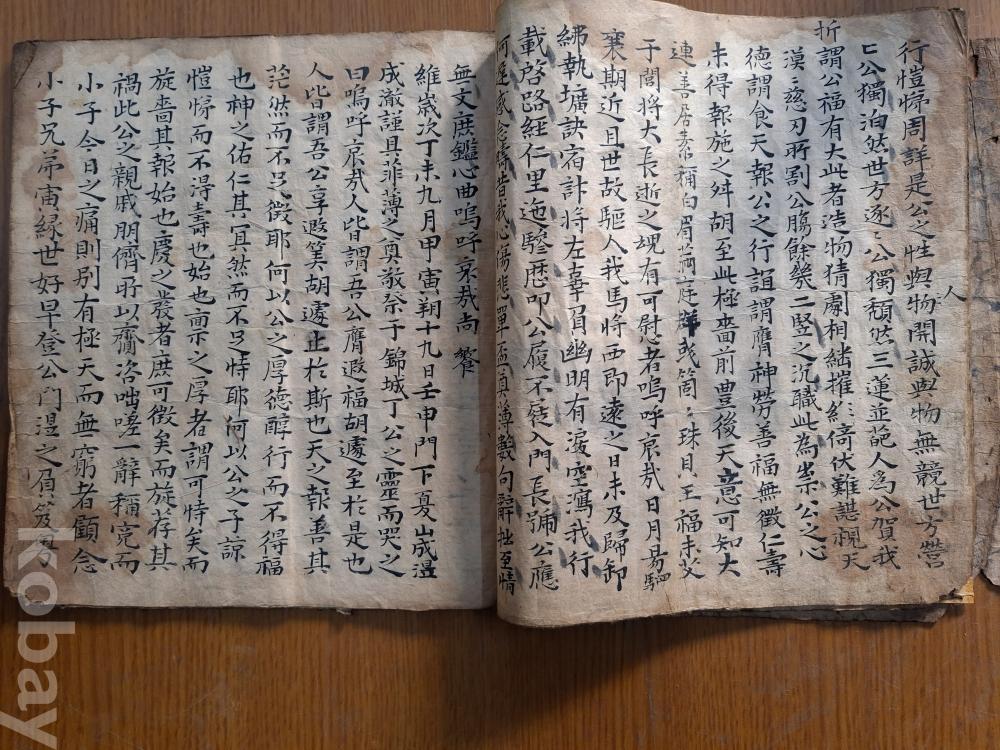 行愷悌周詳是公之性與物開誠與物無競世方營
亡公獨泊然世方逐〻公獨頹然三蓮並葩人爲公賀我
人
折謂公福有大此者造物猜劇相繼摧
倚伏難諶視天
漠〻慈刃所割公腸餘幾二竪之沉職此為祟公之心
德謂食天報公之行謂膺神勞善福無徵仁壽
未得報施之舛胡至此極嗇前豊後天意可知大
連善居素稱白眉
庭
箇〻珠貝王福未艾
于閭將大長逝之魂有可慰者嗚呼哀㢤日月易駟
襄期近且世故驅人我馬將西即遠之日未及歸卸
紼執壙訣宿計將左辜負幽明有淚空瀉我行
載啓路經仁里迤驂歴叩公履不
入門長號公應
何遲感念疇昔我心傷悲單盃奠薄數句辭拙至情
無文庶鑑心曲嗚呼哀㢤尚饗
維歲次丁未九月甲寅朔十九日壬申門下夏山成
成澈謹具菲薄之奠敬祭于錦城丁公之靈而哭之
曰嗚呼哀㢤人皆謂吾公膺遐福胡遽至於是也
人皆謂吾公享遐筭胡遽止於斯也天之報善其
茫然而不足徵耶何以公之厚德醇行而不得福
也神之佑仁其冥然而不足恃耶何以公之子諒
愷悌而不得壽也始也稟之厚者謂可恃矣而
旋嗇其報始也慶之發者庶可徵矣而旋荐其
禍此公之親戚朋儕所以齎咨咄嗟一辭稱寃而
小子今日之痛則別有極天而無窮者顧念
小子兄弟
緣世好早登公門
之眉
kobay